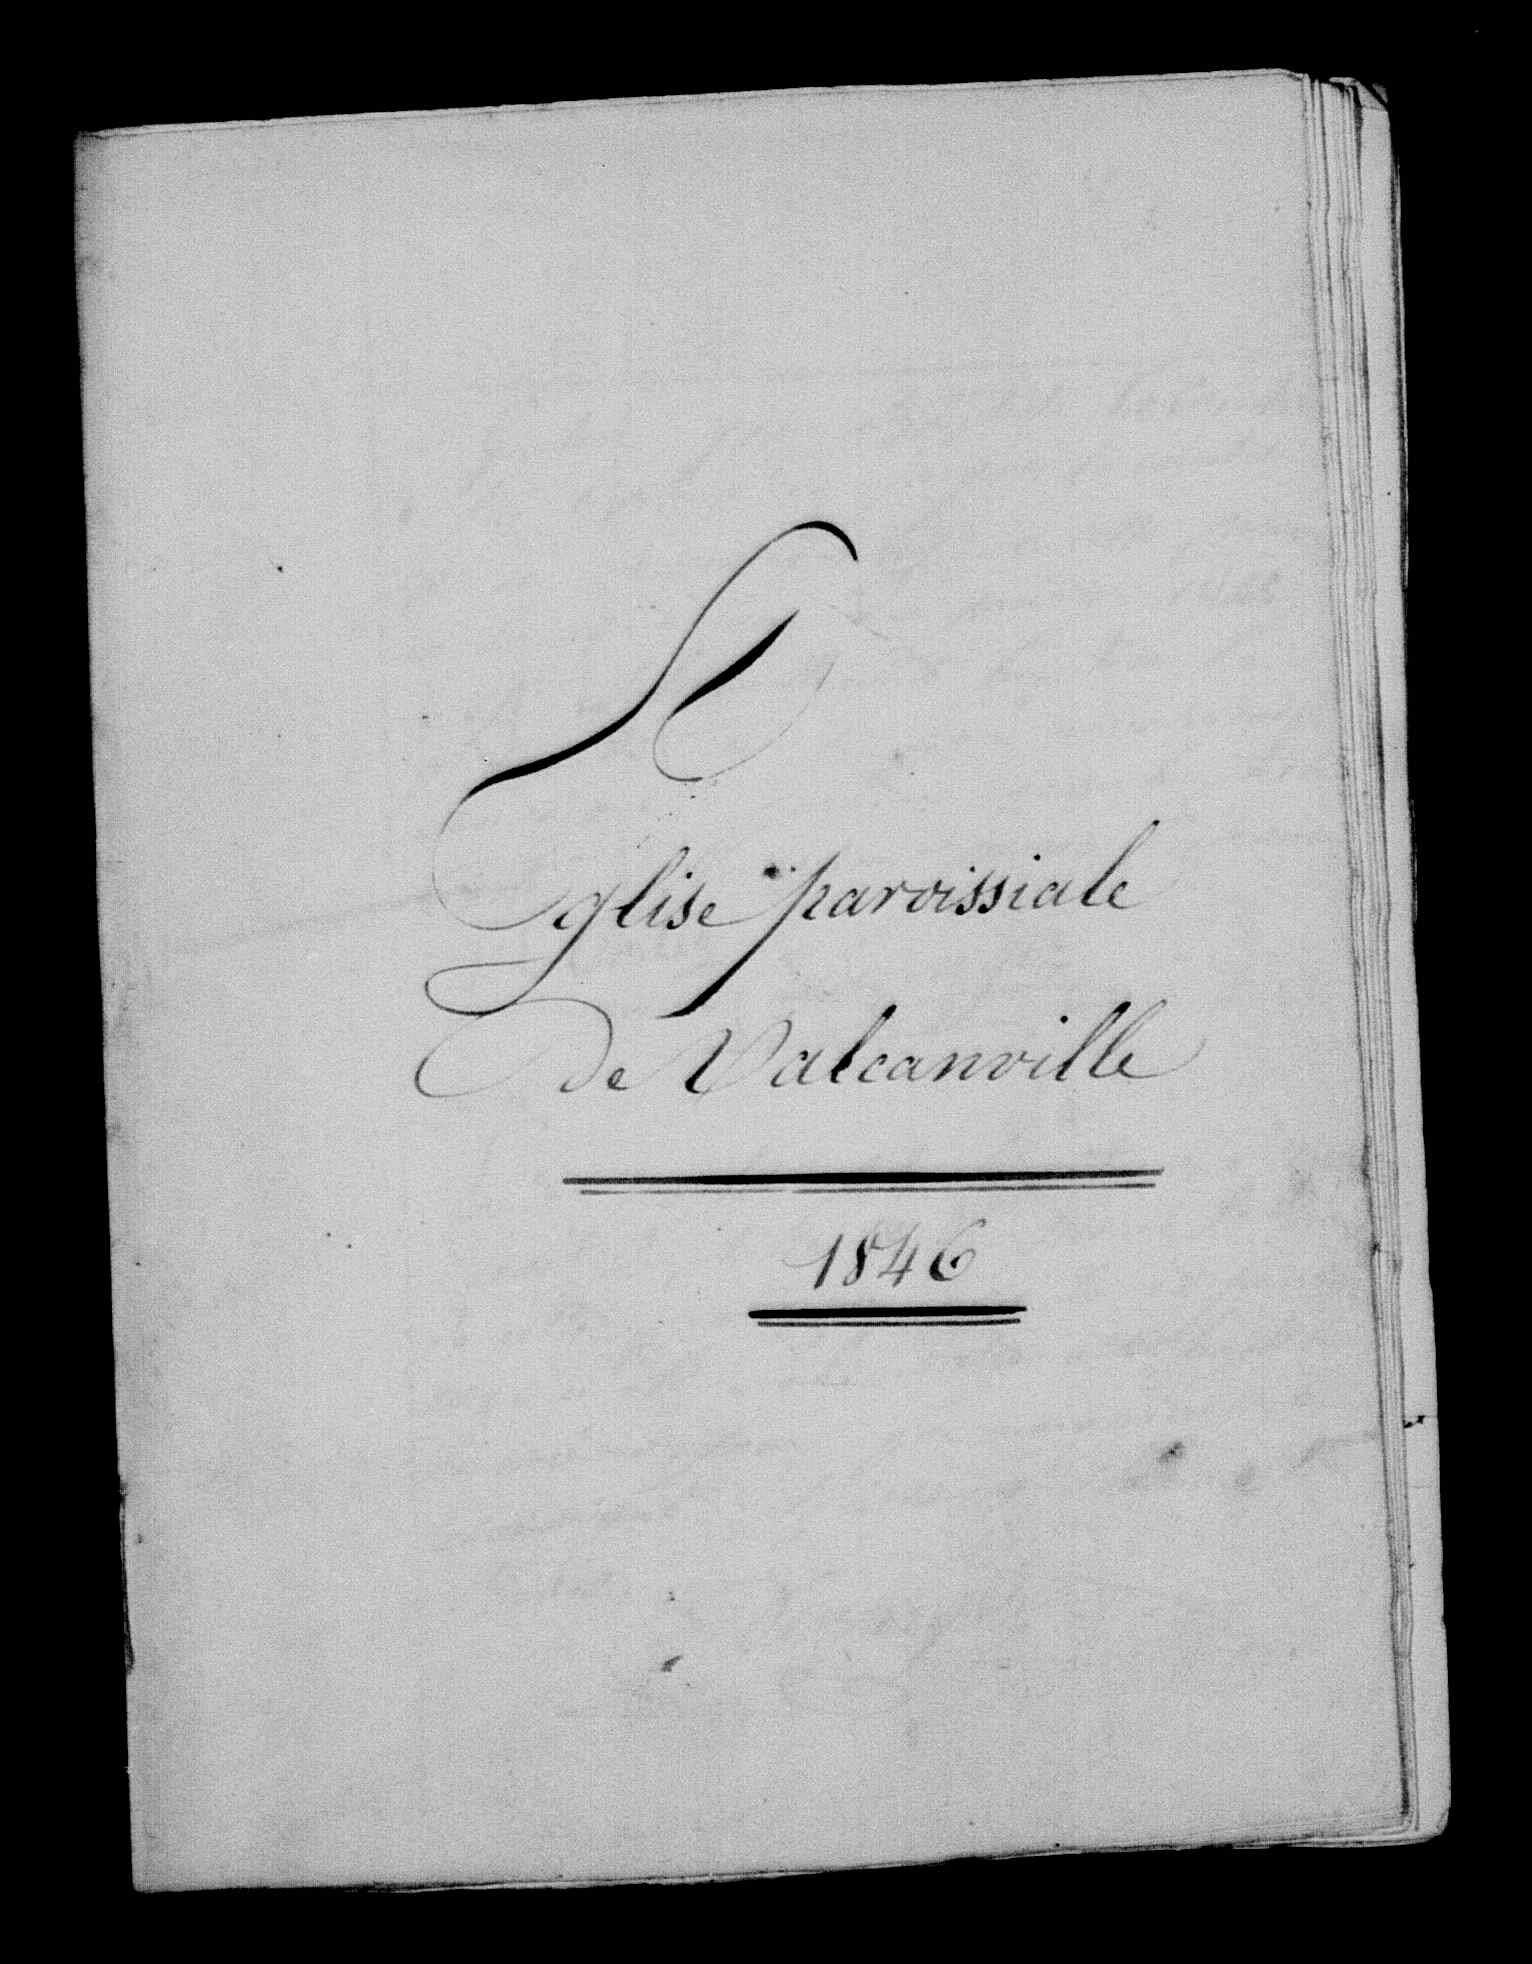 Eglise paroissiale
De Valcanville
1846